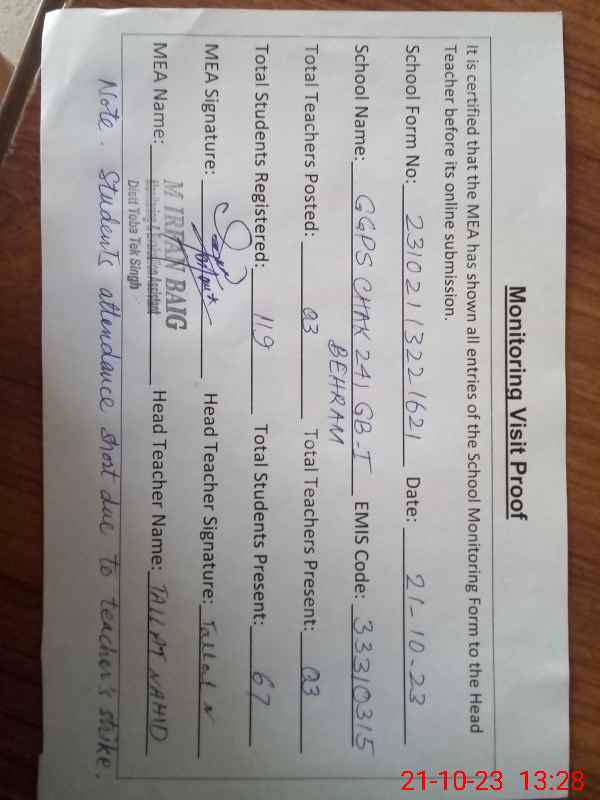 Monitoring Visit Proof
It is certified that the MEA has shown all entries of the School Monitoring Form to the Head
Teacher before its online submission.
School Form No: 23102113221621 Date: 21-10-23
School Name: GGPS CHAK 241 GB-I EMIS Code: 33310315
BEHRAM
Total Teachers Posted: 03 Total Teachers Present: 03
Total Students Registered: 119 Total Students Present: 67
MEA Signature: Head Teacher Signature: Tallat N
MEA Name: M IRFAN BAIG Head Teacher Name: TALLAT NAHID
Monitoring & Evaluation Assistant
Distt Toba Tek Singh
Note. Students attendance short due to teacher's strike.
21-10-23 13:28